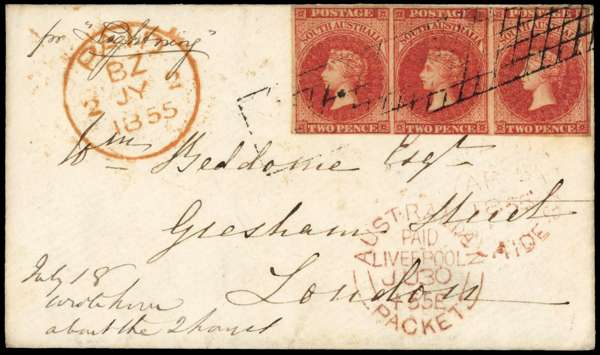 per "Lightning"
BZ
2 JY 2
1855
POSTAGE POSTAGE POSTAGE
SOUTH AUSTRALIA SOUTH AUSTRALIA SOUTH AUSTRALIA
TWO PENCE TWO PENCE TWO PENCE
Wm Beddome Esqr
Gresham Street
London
AUSTRALIAN
PAID
LIVERPOOL
30
55
PACKET
July 18
wrote
about the 2 houses